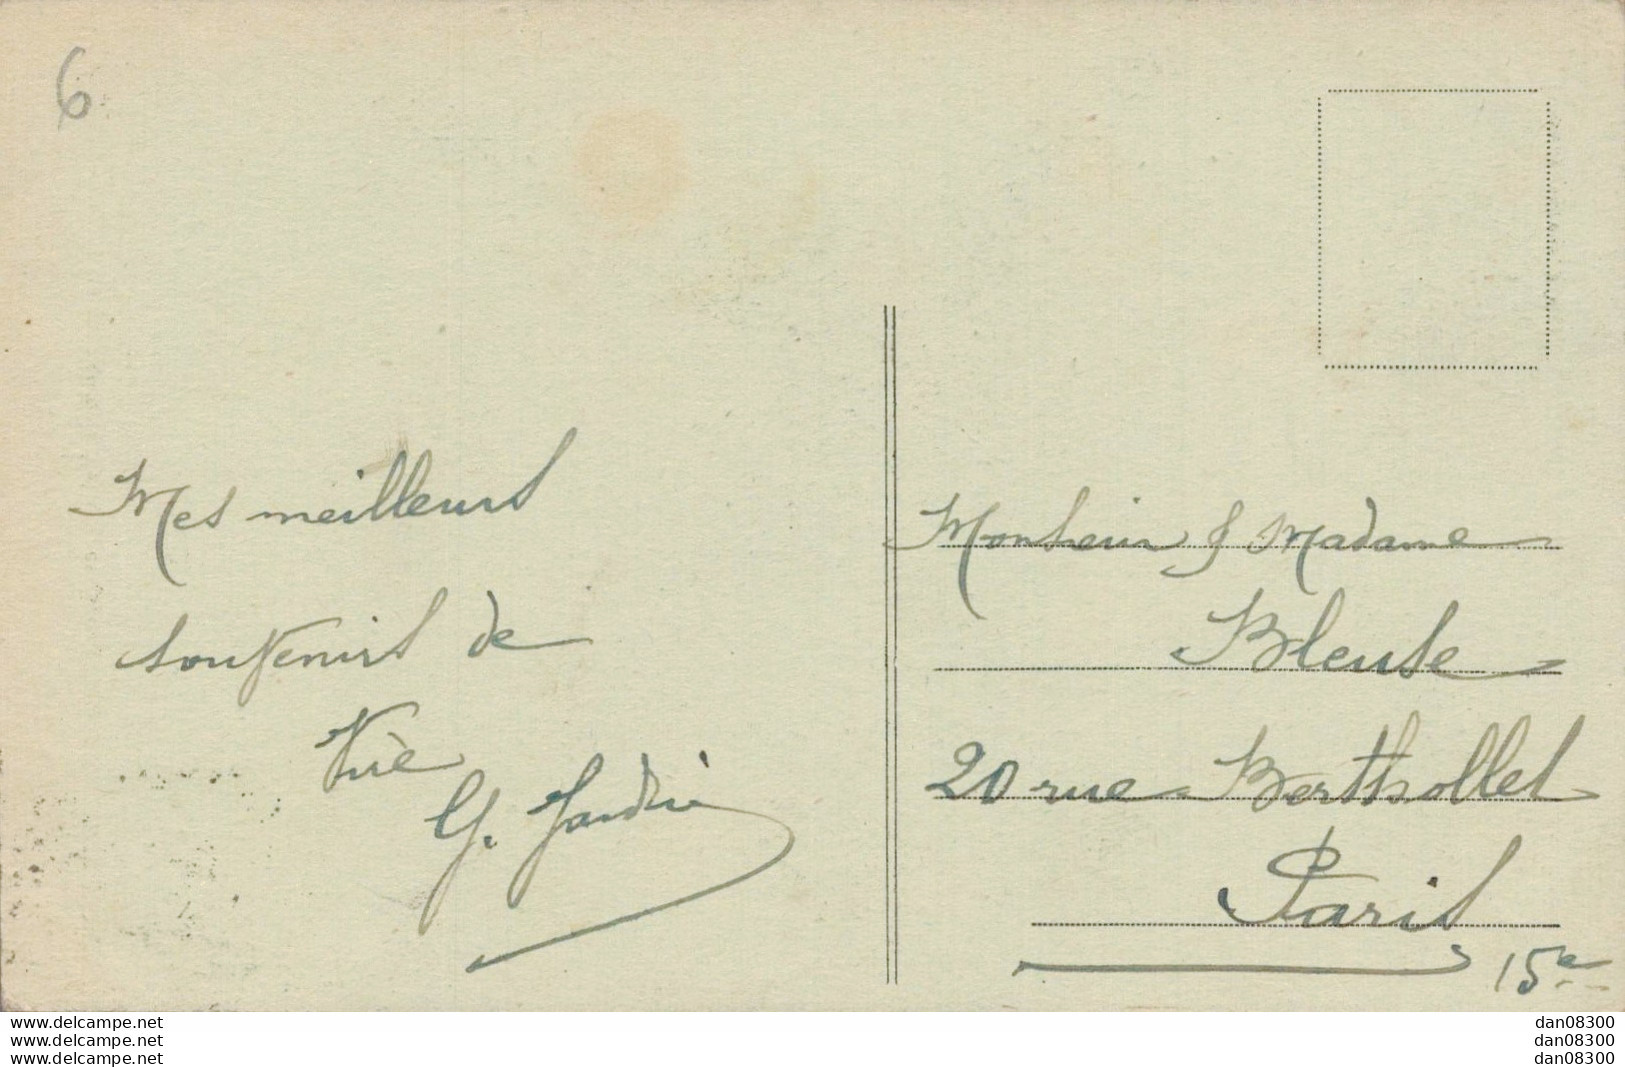 6
Mes meilleurs
souvenirs de
Vic
G. Jardin
Monsieur & Madame
Bleuse
20 rue Berthollet
Paris
15e
www.delcampe.net
www.delcampe.net
www.delcampe.net
dan08300
dan08300
dan08300